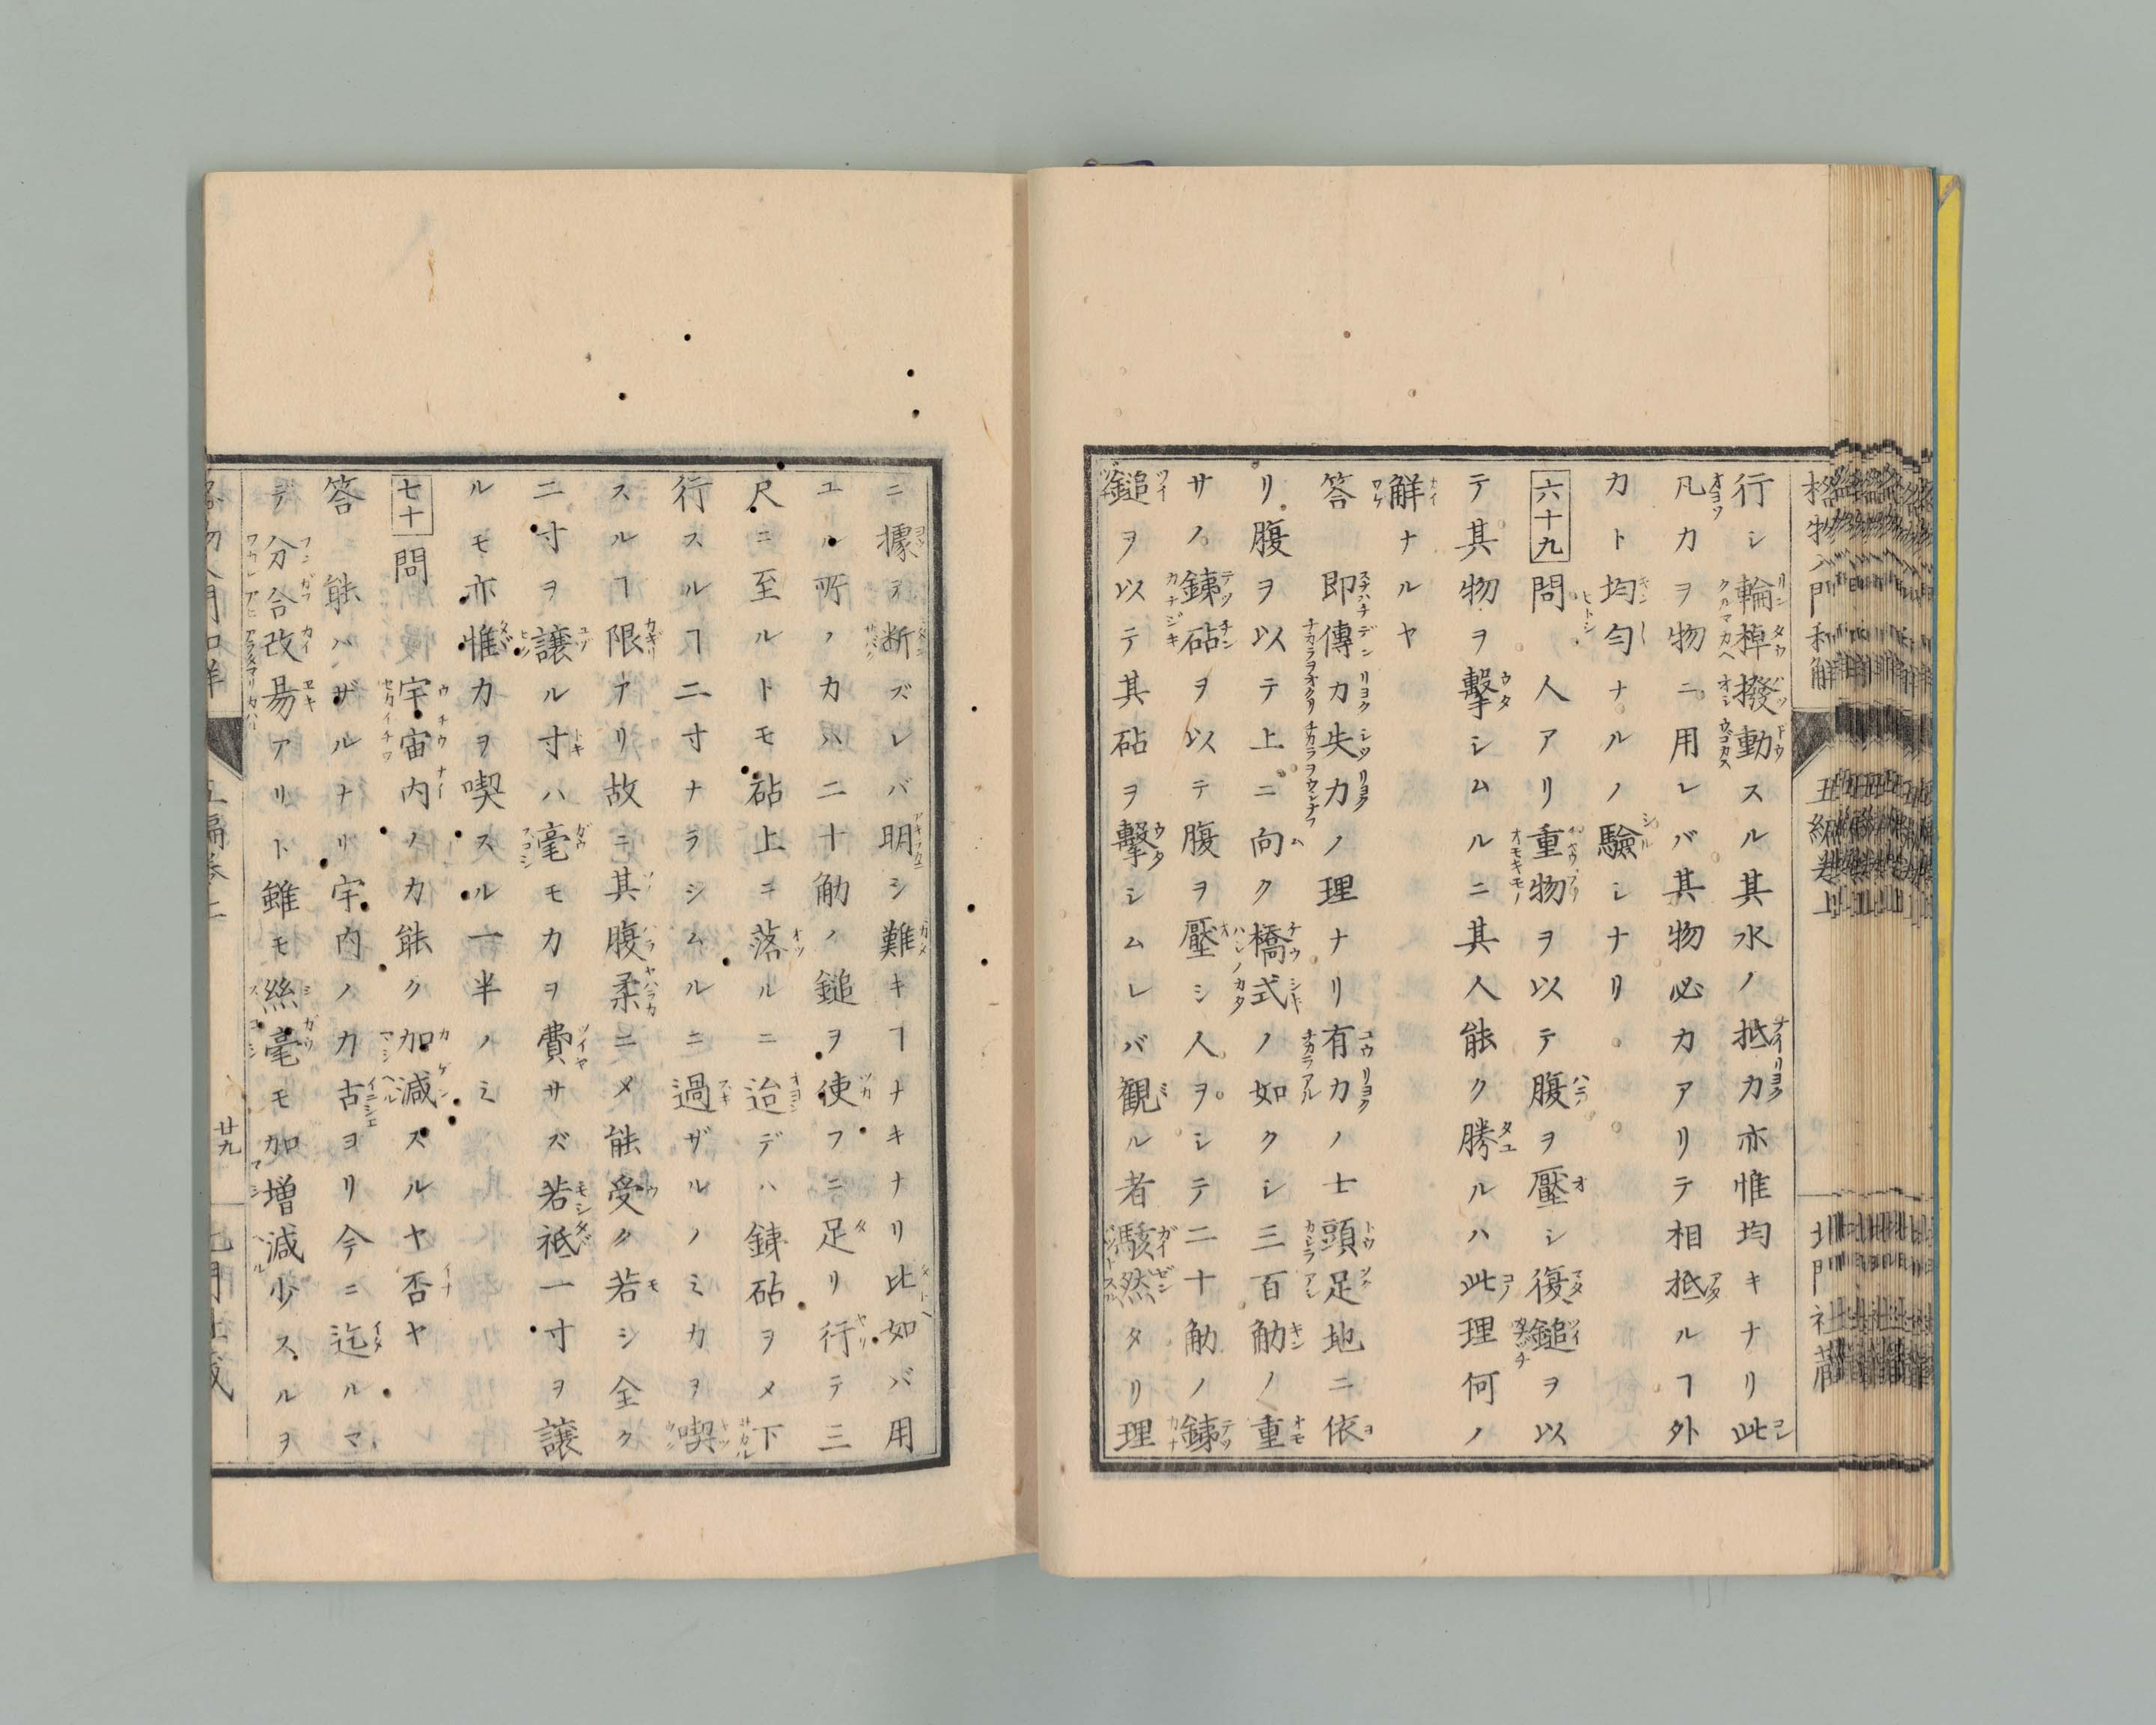 格物入門和解 五編巻上 北門社蔵
行シ輪棹撥動スル其水ノ抵力亦惟均キナリ此
凡力ヲ物ニ用レバ其物必力アリテ相抵ルヿ外
力ト均匀ナルノ驗シナリ
六十九 問 人アリ重物ヲ以テ腹ヲ壓シ復鎚ヲ以
テ其物ヲ擊シムルニ其人能ク勝ルハ此理何ノ
解ナルヤ
答 即傳力失力ノ理ナリ有力ノ士頭足地ニ依
リ腹ヲ以テ上ニ向ク橋式ノ如クシ三百觔ノ重
サノ銕砧ヲ以テ腹ヲ壓シ人ヲシテ二十觔ノ銕
鎚ヲ以テ其砧ヲ擊シムレバ観ル者駭然タリ理
ニ據ヲ断ズレバ明シ難キヿナキナリ比如バ用
ユル所ノ力ハ二十觔ノ鎚ヲ使フニ足リ行テ三
尺ニ至ルトモ砧上ニ落ルニ迨デハ銕砧ヲメ下
行スルヿ二寸ナラシムルニ過ザルノミカヲ喫
スルヿ限アリ故ニ其腹柔ニメ能受ク若シ全ク
二寸ヲ讓ル寸ハ毫モ力ヲ費サズ若祗一寸ヲ讓
ルモ亦惟力ヲ喫スル一半ノミ
七十 問 宇宙内ノ力能ク加減スルヤ否ヤ
答 能ハザルナリ宇内ノ力古ヨリ今ニ迄ルマ
デ分合改易アリト雖モ絲毫モ加增減少スルヲ
廿九